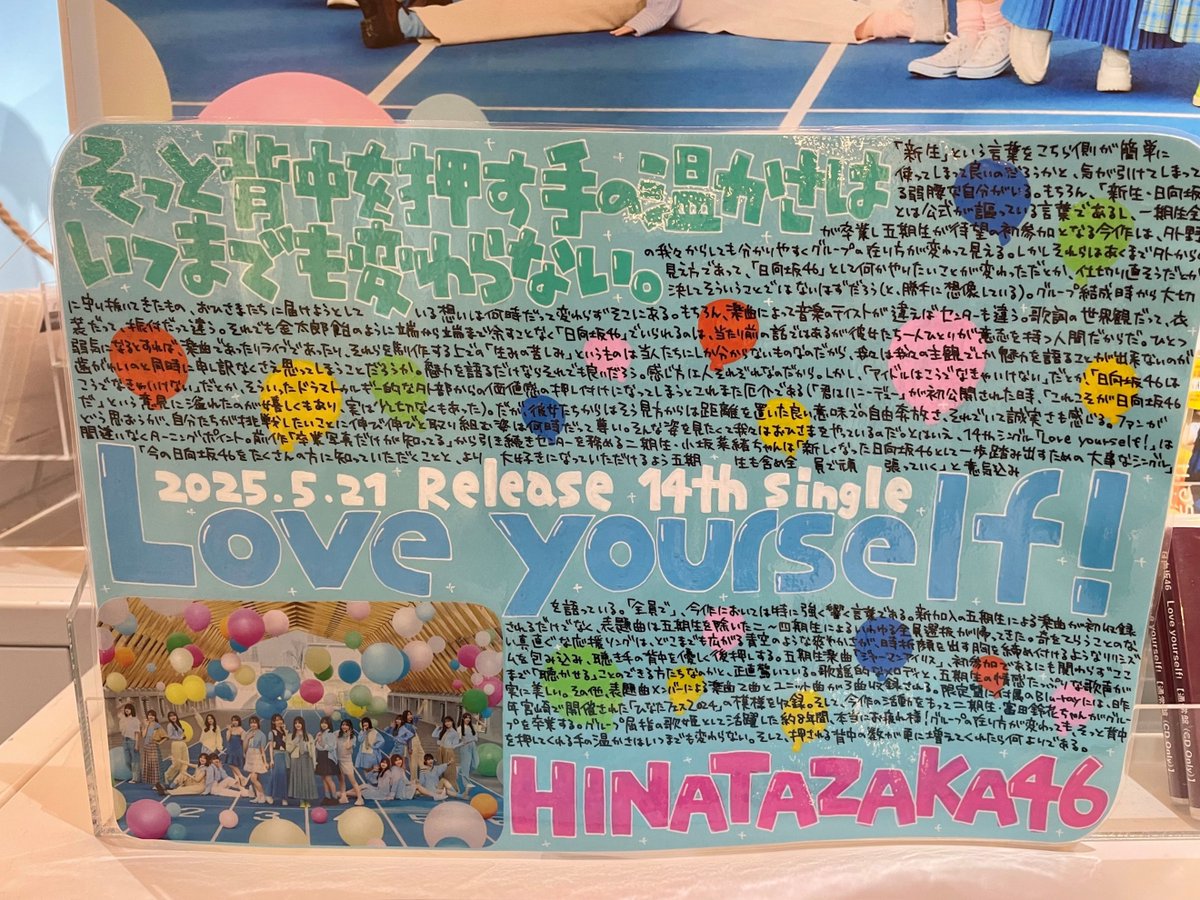 そっと背中を押す手の温かさは
いつまでも変わらない。
「新生」という言葉をこちら側が簡単に
使ってしまって良いのだろうかと、気が引けてしまって
る弱腰な自分がいる。もちろん、「新生・日向坂
とは公式が謳っている言葉であるし、一期生全
が卒業し五期生が待望の初参加となる今作は、外野
の我々からしても分かりやすくグループの在り方が変わって見える。しかしそれらはあくまで外から
見え方であって、「日向坂46」として何かやりたいことが変わっただとか、仕切り直そうだとか
決してそういうことではないはずだろう(と、勝手に想像している)。グループ結成時から大切
に守り抜いてきたもの、おひさまたちに届けようとして いる想いは何時だって変わらずそこにある。もちろん、楽曲によって音楽のテイストが違えばセンターも違う。歌詞の世界観だって、衣
装だって、振付だって違う。それでも金太郎飴のように端から端まで余すことなく「日向坂46」でいられるのは、当たり前の話ではあるが彼女たち一人ひとりが意志を持つ人間だからだ。ひとつ
弱気になるとすれば、楽曲であったりライブであったり、それらを創作する上での「生みの苦しみ」というものは当人たちにしか分からないものなのだから、我々は我々の主観でしか魅力を語ることが出来ないのが
歯がゆいのと同時に申し訳なくさえ思ってしまうことだろうか。魅力を語るだけならそれでも良いだろう。感じ方は人それぞれなのだから。しかし、「アイドルはこうでなきゃいけない」だとか、「日向坂46は
こうでなきゃいけない」だとか、そういったドラマトゥルギー的な外部からの価値感の押し付けになってしまうとこれまた厄介である(「君はハニーデュー」が初公開された時、「これこそが日向坂46
だ」という意見に溢れたのが嬉しくもあり、実は切なくもあった)。だが、彼女たちからはそう見方からは距離を置いた良い意味で自由奔放さ、それでいて誠実さも感じる。ファンが
どう思おうが、自分たちが挑戦したいことに伸び伸びと取り組む姿は何時だって尊い。そんな姿を見たくて我々はおひさまをやっているのだ。とはいえ、14thシングル「Love yourself!」は
間違いなくターニングポイント。前作「卒業写真だけが知ってる」から引き続きセンターを務める二期生、小坂菜緒ちゃんは「新しくなった日向坂46として一歩踏み出すための大事なシングル」
「今の日向坂46をたくさんの方に知っていただくことと、より 大好きになっていただけるよう五期 生も含め全 員で頑 張っていく」と意気込み
2025.5.21 Release 14th single
Love yourself!
を語っている。「全員で」、今作においては特に強く響く言葉である。新加入の五期生による楽曲が初収録
されるだけでなく、表題曲は五期生を除いた二〜四期生によるいわゆる全員選抜が帰ってきた。奇をてらうことのな
い真直ぐな応援ソングは、どこまでも広がる青空のような爽やかさが、時折顔を出す胸を締め付けるようなリリシズ
ムを包み込み、聴き手の背中を優しく後押しする。五期生楽曲「ジャーマンアイリス」、初参加であるにも関わらずここ
まで「聴かせる」ことのできる方たちなのかと、正直驚いている。歌謡的なメロディと、五期生の情感たっぷりな歌声が
実に美しい。その他、表題曲メンバーによる楽曲2曲とユニット曲が3曲収録される。限定盤付属のBlu-rayには、昨
年宮崎で開催された「ひなたフェス2024」の模様を収録。そして、今作の活動をもって二期生・富田鈴花ちゃんがグルー
プを卒業する。グループ屈指の歌姫として活躍した約8年間、本当にお疲れ様!グループの在り方が変わっても、そっと背中
を押してくれる手の温かさはいつまでも変わらない。そして、押される背中の数が更に増えてくれたら何よりである。
HINATAZAKA46
日向坂46 Love yourself! 【通常盤(CD Only)】